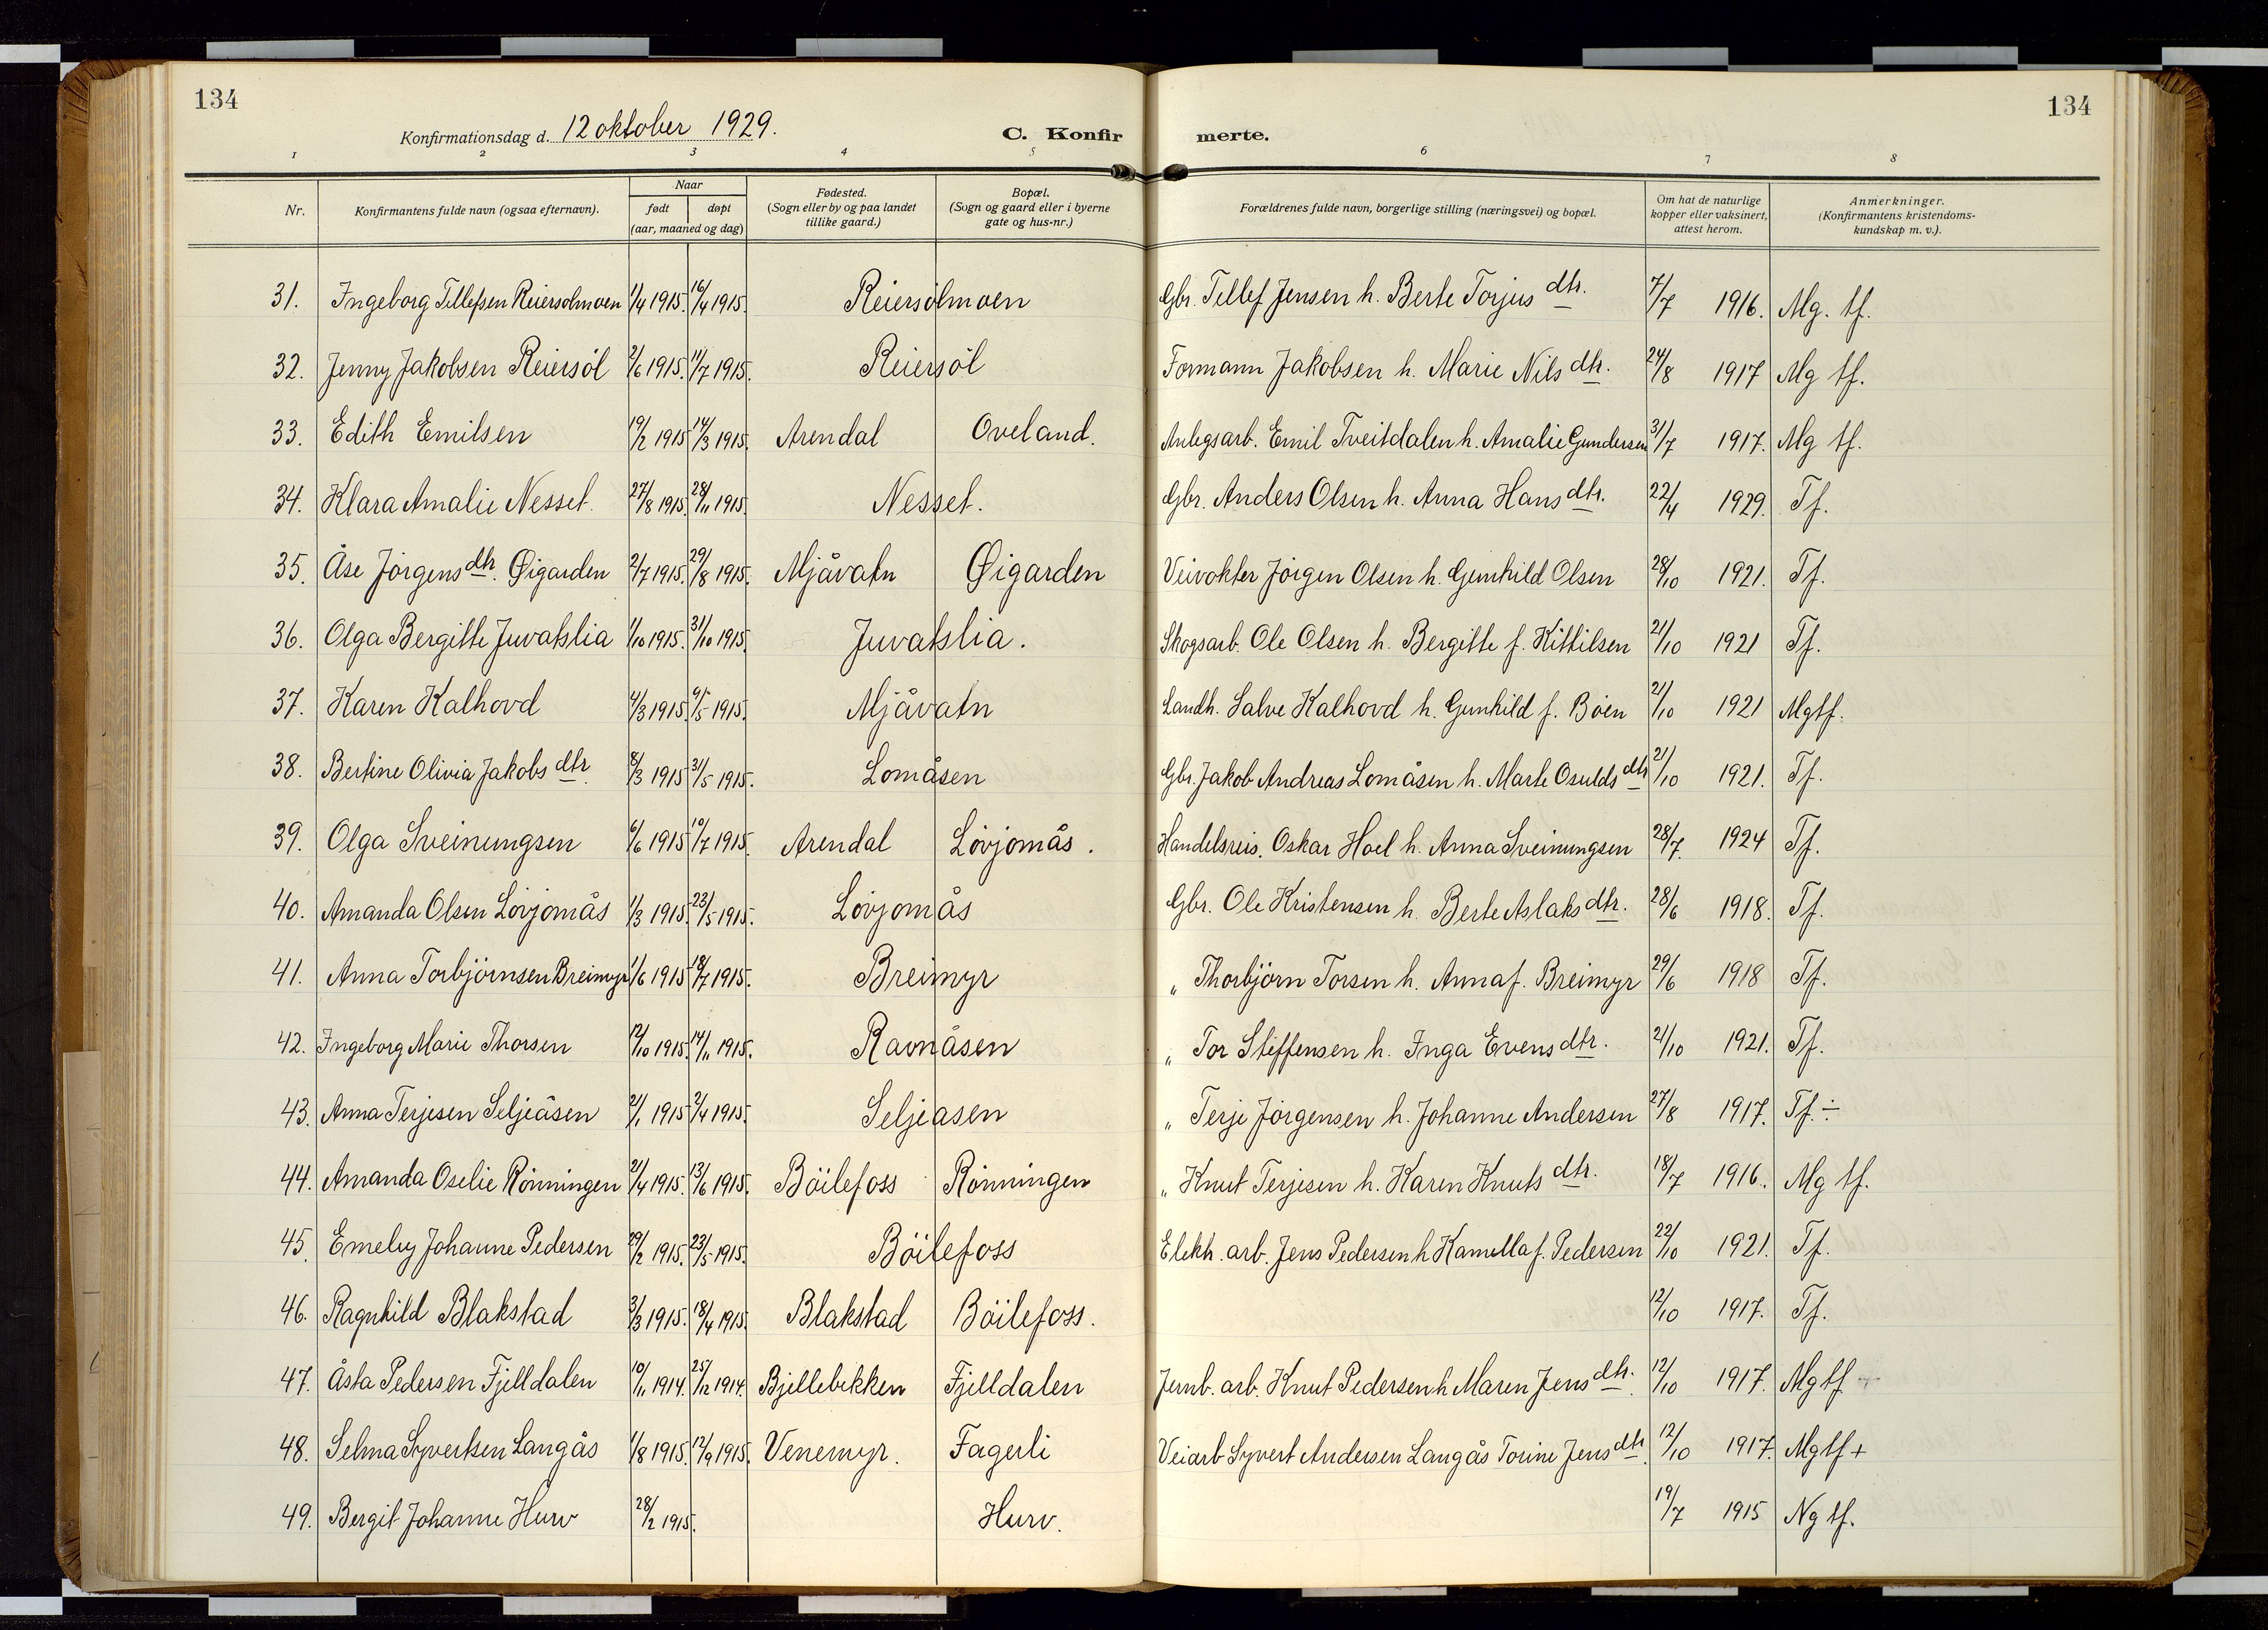 134
134
Konfirmationsdag d. 12 oktober 1929.
C. Konfir merte.
1 2 3 4 5 6 7 8
Nr. | Konfirmantens fulde navn (ogsaa efternavn). | Naar født døpt (aar, maaned og dag) | Fødested. (Sogn eller by og paa landet tillike gaard.) | Bopæl. (Sogn og gaard eller i byerne gate og hus-nr.) | Forældrenes fulde navn, borgerlige stilling (næringsvei) og bopæl. | Om hat de naturlige kopper eller vaksinert, attest herom. | Anmerkninger. (Konfirmantens kristendoms-kundskap m. v.).
31. Ingeborg Tellefsen Reiersølmoen 1/4 1915. 16/4 1915. Reiersølmoen Gbr. Tellef Jensen h. Berte Torjus dtr. 7/7 1916. Mg. tf.
32. Jenny Jakobsen Reiersöl 2/6 1915. 11/7 1915. Reiersöl Formann Jakobsen h. Marie Nils dtr. 24/8 1917 Mg tf.
33. Edith Emilsen 19/2 1915 14/3 1915. Arendal Oveland. Anlegsarb. Emil Tveitdalen h. Amalie Gundersen 31/7 1917. Mg tf.
34. Klara Amalie Nesset. 27/8 1915. 28/11 1915. Nesset. Gbr. Anders Olsen h. Anna Hans dtr. 22/4 1929. Tf.
35. Åse Jörgens dtr. Øigarden 2/7 1915. 29/8 1915. Mjåvatn Øigarden Veivokter Jörgen Olsen h. Gunhild Olsen 28/10 1921. Tf.
36. Olga Bergitte Juvatslia 1/10 1915. 31/10 1915. Juvatslia. Skogsarb. Ole Olsen h. Bergitte f. Kittilsen 21/10 1921 Tf.
37. Karen Kalhovd 4/3 1915. 9/5 1915. Mjåvatn Landh. Salve Kalhovd h. Gunhild f. Böen 21/10 1921 Mg tf.
38. Bertine Olivia Jakobs dtr. 8/3 1915 31/5 1915. Lomåsen Gbr. Jakob Andreas Lomåsen h. Marte Osulds dtr 21/10 1921. Tf.
39. Olga Sveinungsen 6/6 1915 /7 1915. Arendal Lövjomås. Handelsreis. Oskar Hoel h. Anna Sveinungsen 28/7. 1924 Tf.
40. Amanda Olsen Lövjomås 1/3 1915. 23/5 1915. Lövjomås Gbr. Ole Kristensen h. Berte Aslaks dtr. 28/6 1918. Tf.
41. Anna Torbjörnsen Breimyr 1/6 1915 18/7 1915. Breimyr " Thorbjörn Torsen h. Anna f. Breimyr 29/6 1918 Tf.
42. Ingeborg Marie Thorsen 12/10 1915. 14/11 1915. Ravnåsen " Tor Steffensen h. Inga Evens dtr. 21/10 1921. Tf.
43. Anna Terjesen Seljeåsen 2/1 1915 2/4 1915. Seljeåsen " Terje Jörgensen h. Johanne Andersen 27/8 1917. Tf. ÷
44. Amanda Oselie Rönningen 21/4 1915. 13/6 1915. Böilefoss Rönningen " Knut Terjesen h. Karen Knuts dtr. 18/7 1916. Mg tf.
45. Emely Johanne Pedersen /2 1915. 23/5 1915. Böilefoss Elekh. arb. Jens Pedersen h Kamilla f. Pedersen 22/10 1921. Tf.
46. Ragnhild Blakstad 3/3 1915. 18/4 1915. Blakstad Böilefoss. 12/10 1917. Tf.
47. Åsta Pedersen Fjelldalen 10/11 1914. 25/12 1914. Bjellebekken Fjelldalen Jernb. arb. Knut Pedersen h Maren Jens dtr. 12/10 1917. Mg tf +
48. Selma Syvertsen Langås 1/8 1915. 12/9 1915. Venemyr. Fagerli Veiarb Syvert Andersen Langås Torine Jens dtr. 12/10 1917. Mg tf +
49. Bergit Johanne Hurv 28/2 1915. Hurv. 19/7 1915 Ng tf.